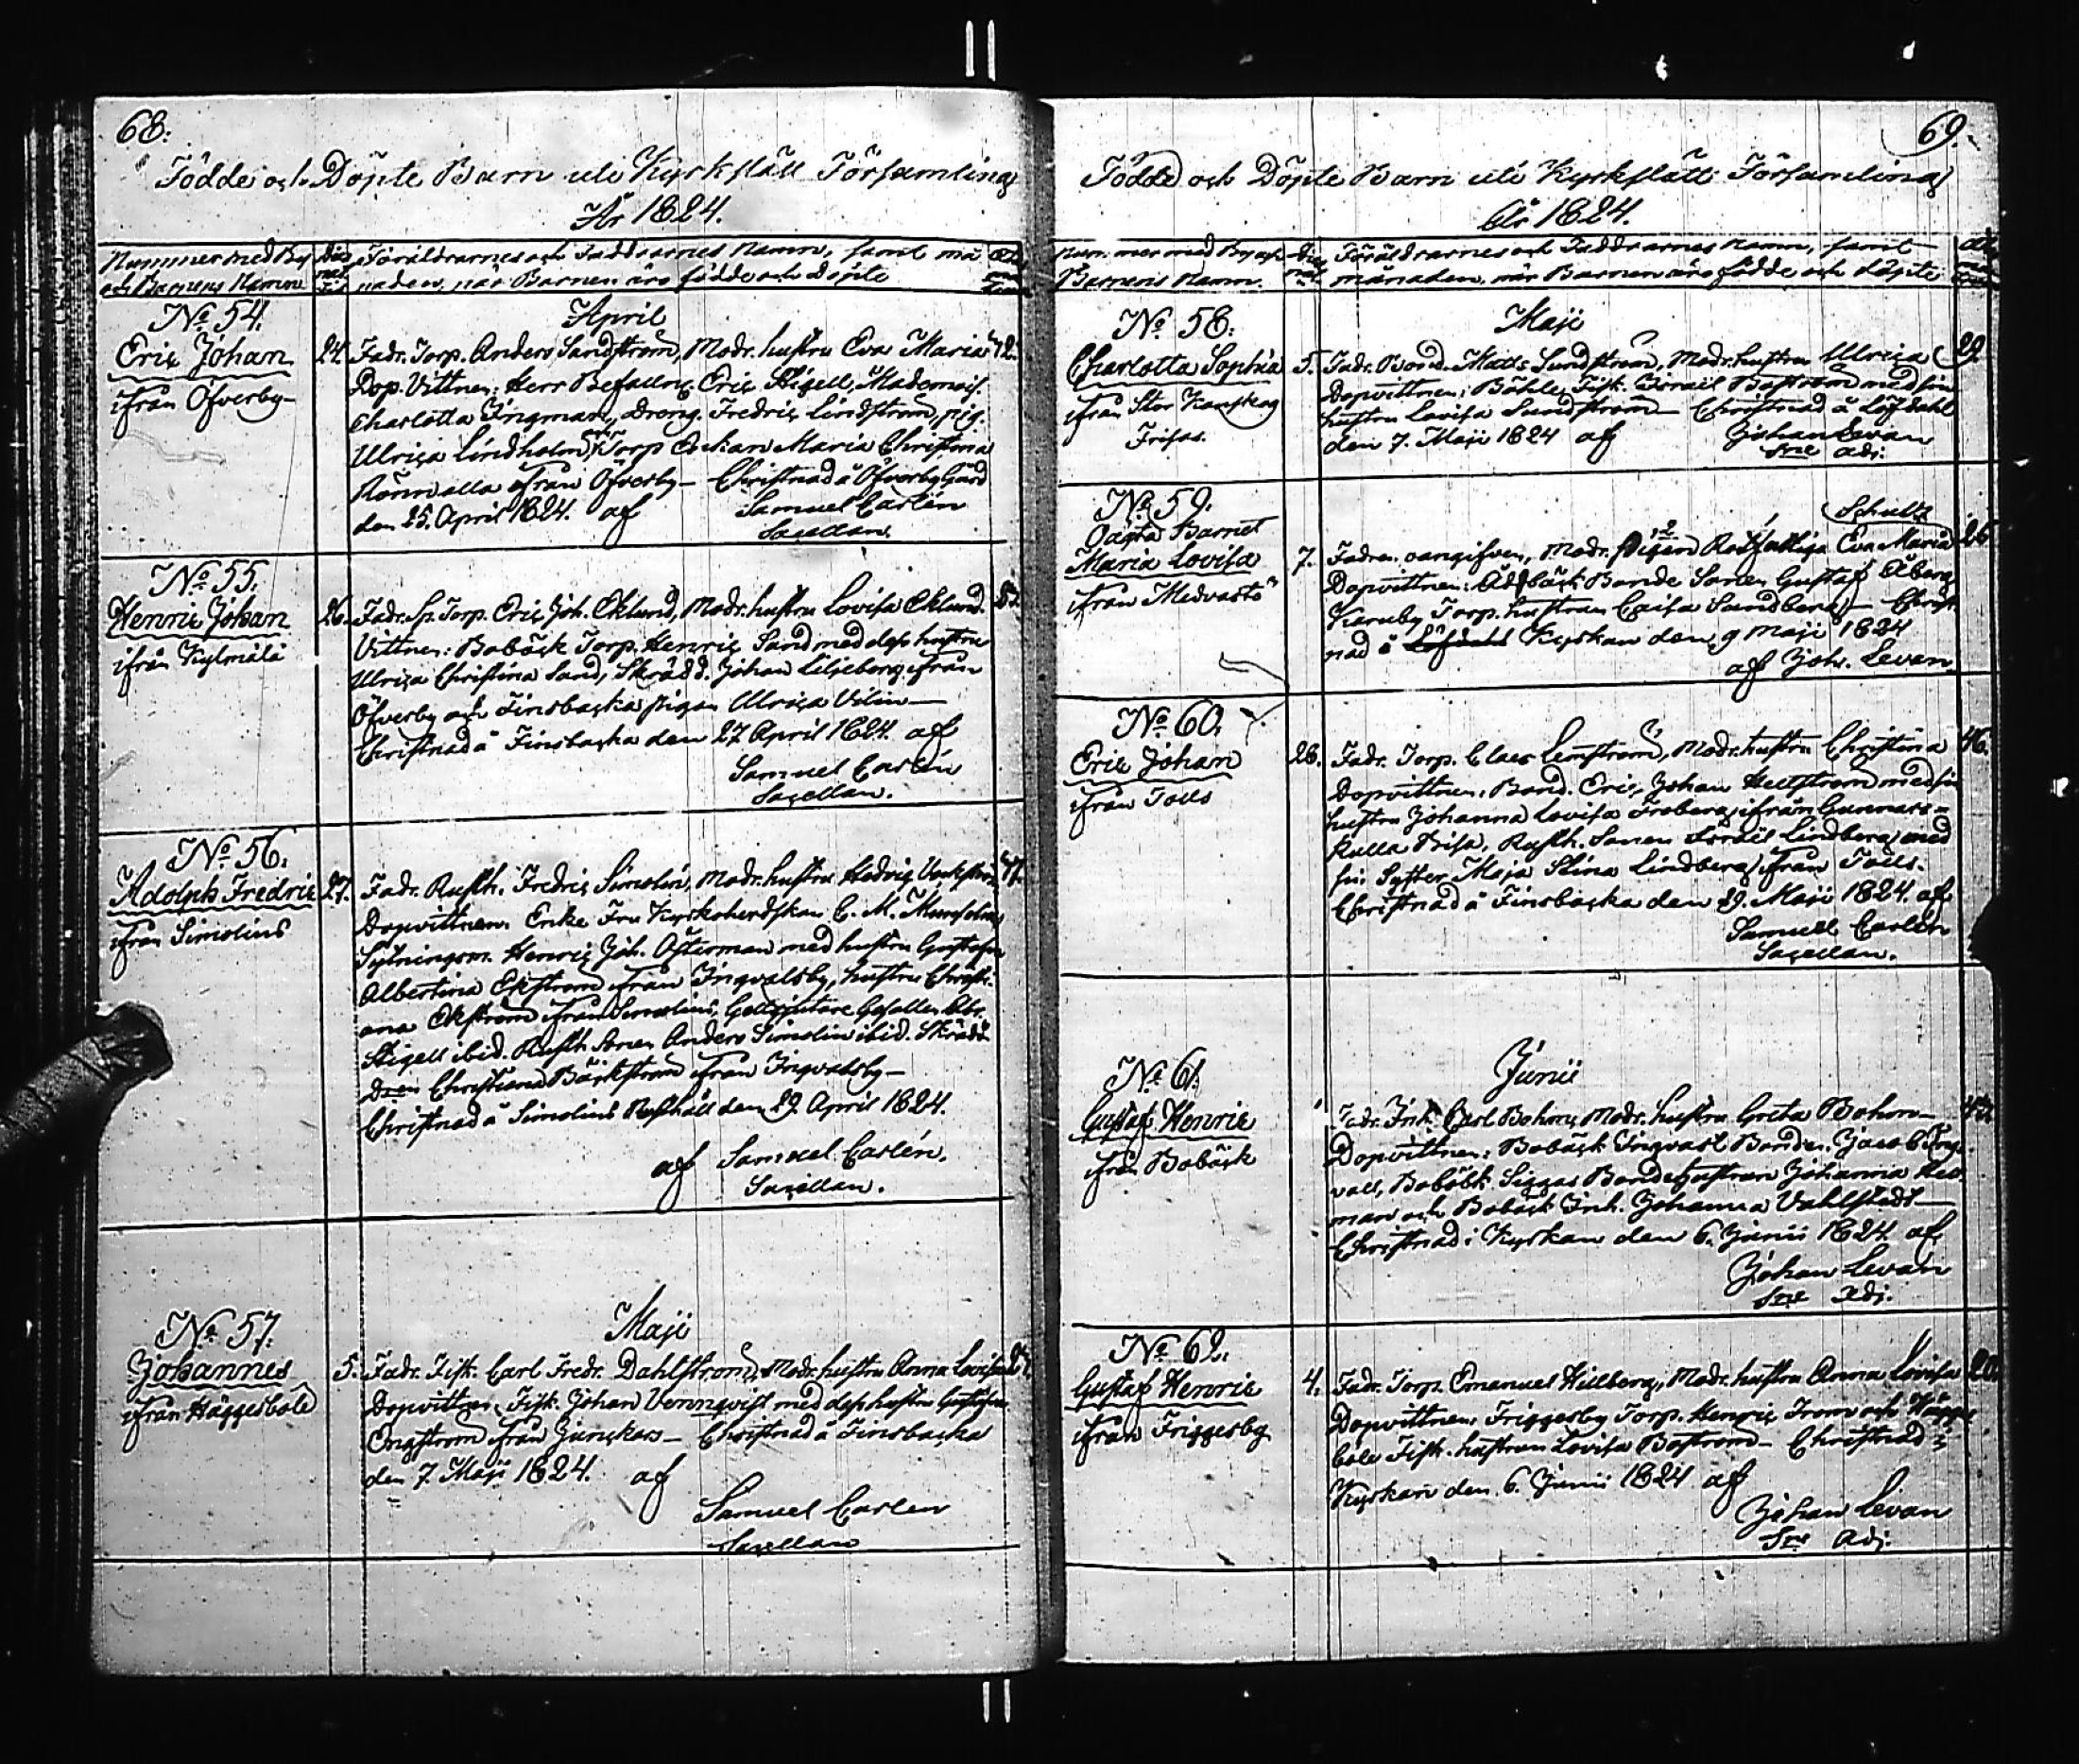 68.
Födde och Döpte Barn uti Kyrkslätt Församling
År 1824.
Nummer med By
och Barnens Namn
Föräldrarnes och Faddrarnes Namn, samt må
naden, när Barnen äro födde och döpte
April
No 54.
Eric Johan
ifrån Öfverby
24. Fadr. Torp. Anders Sandström, Modr. hustru Eva Maria 42.
Dop. Vittnen: Herr Befallm. Eric Stigell, Mademois.
Charlotta Fingman, dreng. Fredric Lindström, pig.
Ulrica Lindholm, Torp Enkan Maria Christina
Rönn alla ifrån Öfverby – Christnad å Öfverby Gård
den 25. April 1824. af Samuel Carlén
Sacellan.
No 55.
Henric Johan
ifrån Kylmälä
26. Fadr. Sp. Torp. Eric Joh. Eklund, Modr. hustru Lovisa Eklund.
Vittnen: Bobäck Torp. Henric Sand med dess hustru
Ulrica Christina Sand, Skrädd. Johan Liljeberg ifrån
Öfverby och Finsbacka pigan Ulrica Vilin –
Christnad å Finsbacka den 27 April 1824. af
Samuel Carlén
Sacellan.
No 56.
Adolph Fredric
ifrån Simolins
27. Fadr. Rusth. Fredric Simolin, Modr. hustru Hedvig
Dopvittnen. Enke Fru Kyrkoherdskan C. M.
Sytningsm. Henric Joh. Österman med hustru Gustafva
Albertina Ekström ifrån Ingvalsby, hustru Christi-
ana Ekström ifrån Simolins, Geselle Abr.
Stigell ibid. Rusth. Sonen Anders Simolin ibid. Skrädd
Christiana Bäckström ifrån Ingvalsby –
Christnad å Simolins Rusthåll den 29. April 1824.
af Samuel Carlén.
Sacellan.
Maji
No 57.
Johannes
ifrån Häggesböle
5. Fadr. Fisk. Carl Fredr. Dahlström, Modr. hustru Anna Lovisa
Dopvittnen, Fisk. Johan Vennqvist med dess hustru Gustafva
Engström ifrån – Christnad å Finsbacka
den 7. Maji 1824. af
Samuel Carlen
Sacellan
69.
Födde och Döpte Barn uti Kyrkslätt Församling
År 1824.
Num mer med By och
Barnens Namn.
Föräldrarnes och Faddrarnes Namn, samt
månaden, när Barnen äro födde och döpte
Maji
No 58.
Charlotta Sophia
ifrån Stor Kanskog
Frisas.
5. Fadr. Bond. Matts Sundström, Modr. hustru Ulrica 29
Dopvittnen; Böhle Fisk. Israil Boström med sin
hustru Lovisa Sundström – Christnad å Löfdahl
den 7. Maji 1824 af Johan Levan
Sne Adj.
No 59.
Oägta Barnet
Maria Lovisa
ifrån Medvastö
Schultz
7. Fadren oangifven, Modr. pigan Rättfattiga Eva Maria 26
Dopvittnen: Åddbäck Bonde Sonen Gustaf Åberg
Karuby Torp. hustrun Caisa Sandberg – Christ
nad å Löfdahl Kyrkan den 9 Maji 1824
af Joh. Levan
No 60.
Eric Johan
ifrån Tolls
26. Fadr. Torp. Claes Lenström, Modr. hustru Christina 46.
Dopvittnen. Bond. Eric Johan Hellström med sin
hustru Johanna Lovisa Froberg ifrån Gunnars-
kulla Bisa, Rusth. Sonen Israil Lindberg med
sin Syster Maja Stina Lindberg ifrån Tolls.
Christnad å Finsbacka den 29. Maji 1824. af
Samuel Carlén
Sacellan.
Junii
No 61.
Gustaf Henric
ifrån Bobäck
1 Fadr. Inh. Carl Bohm, Modr. hustru Greta Bohm –
Dopvittnen: Bobäck Ingvast Bonden Jacob Ing
vall, Bobäck Siggas Bondehustrun Johanna Hed
man och Bobäck Inh. Johanna Vahlstedt –
Christnad i Kyrkan den 6. Junii 1824. af
Johan Levan
Sne Adj.
No 62.
Gustaf Henric
ifrån Friggesby
4. Fadr. Torp. Emanuel Hillberg, Modr. hustru Anna Lovisa
Dopvittnen: Friggesby Torp. Henric From och Hägges
böle Fisk. hustrun Lovisa Boström – Christnad i
Kyrkan den 6. Junii 1824 af
Johan Levan
Sne Adj.